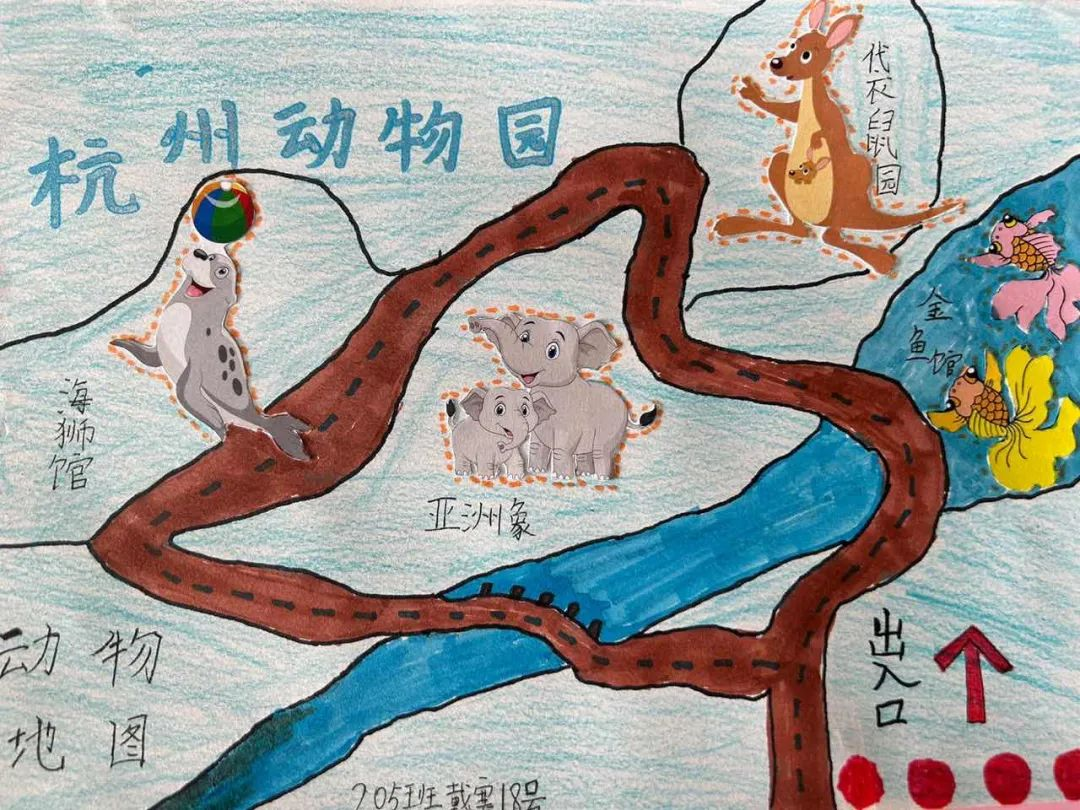 杭州动物园
袋鼠园
金鱼馆
海狮馆
亚洲象
出入口
动物
地图
205班戴 18号